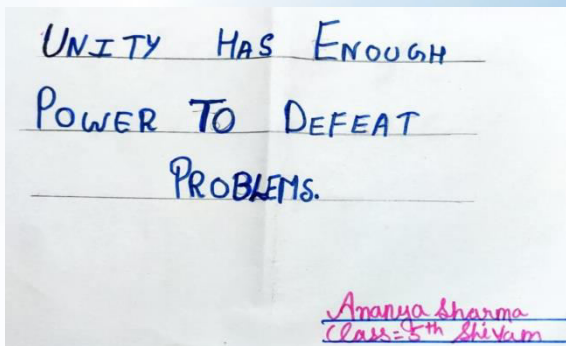 UNITY HAS ENOUGH
POWER TO DEFEAT
PROBLEMS.
Ananya Sharma
Class=5th Shivam